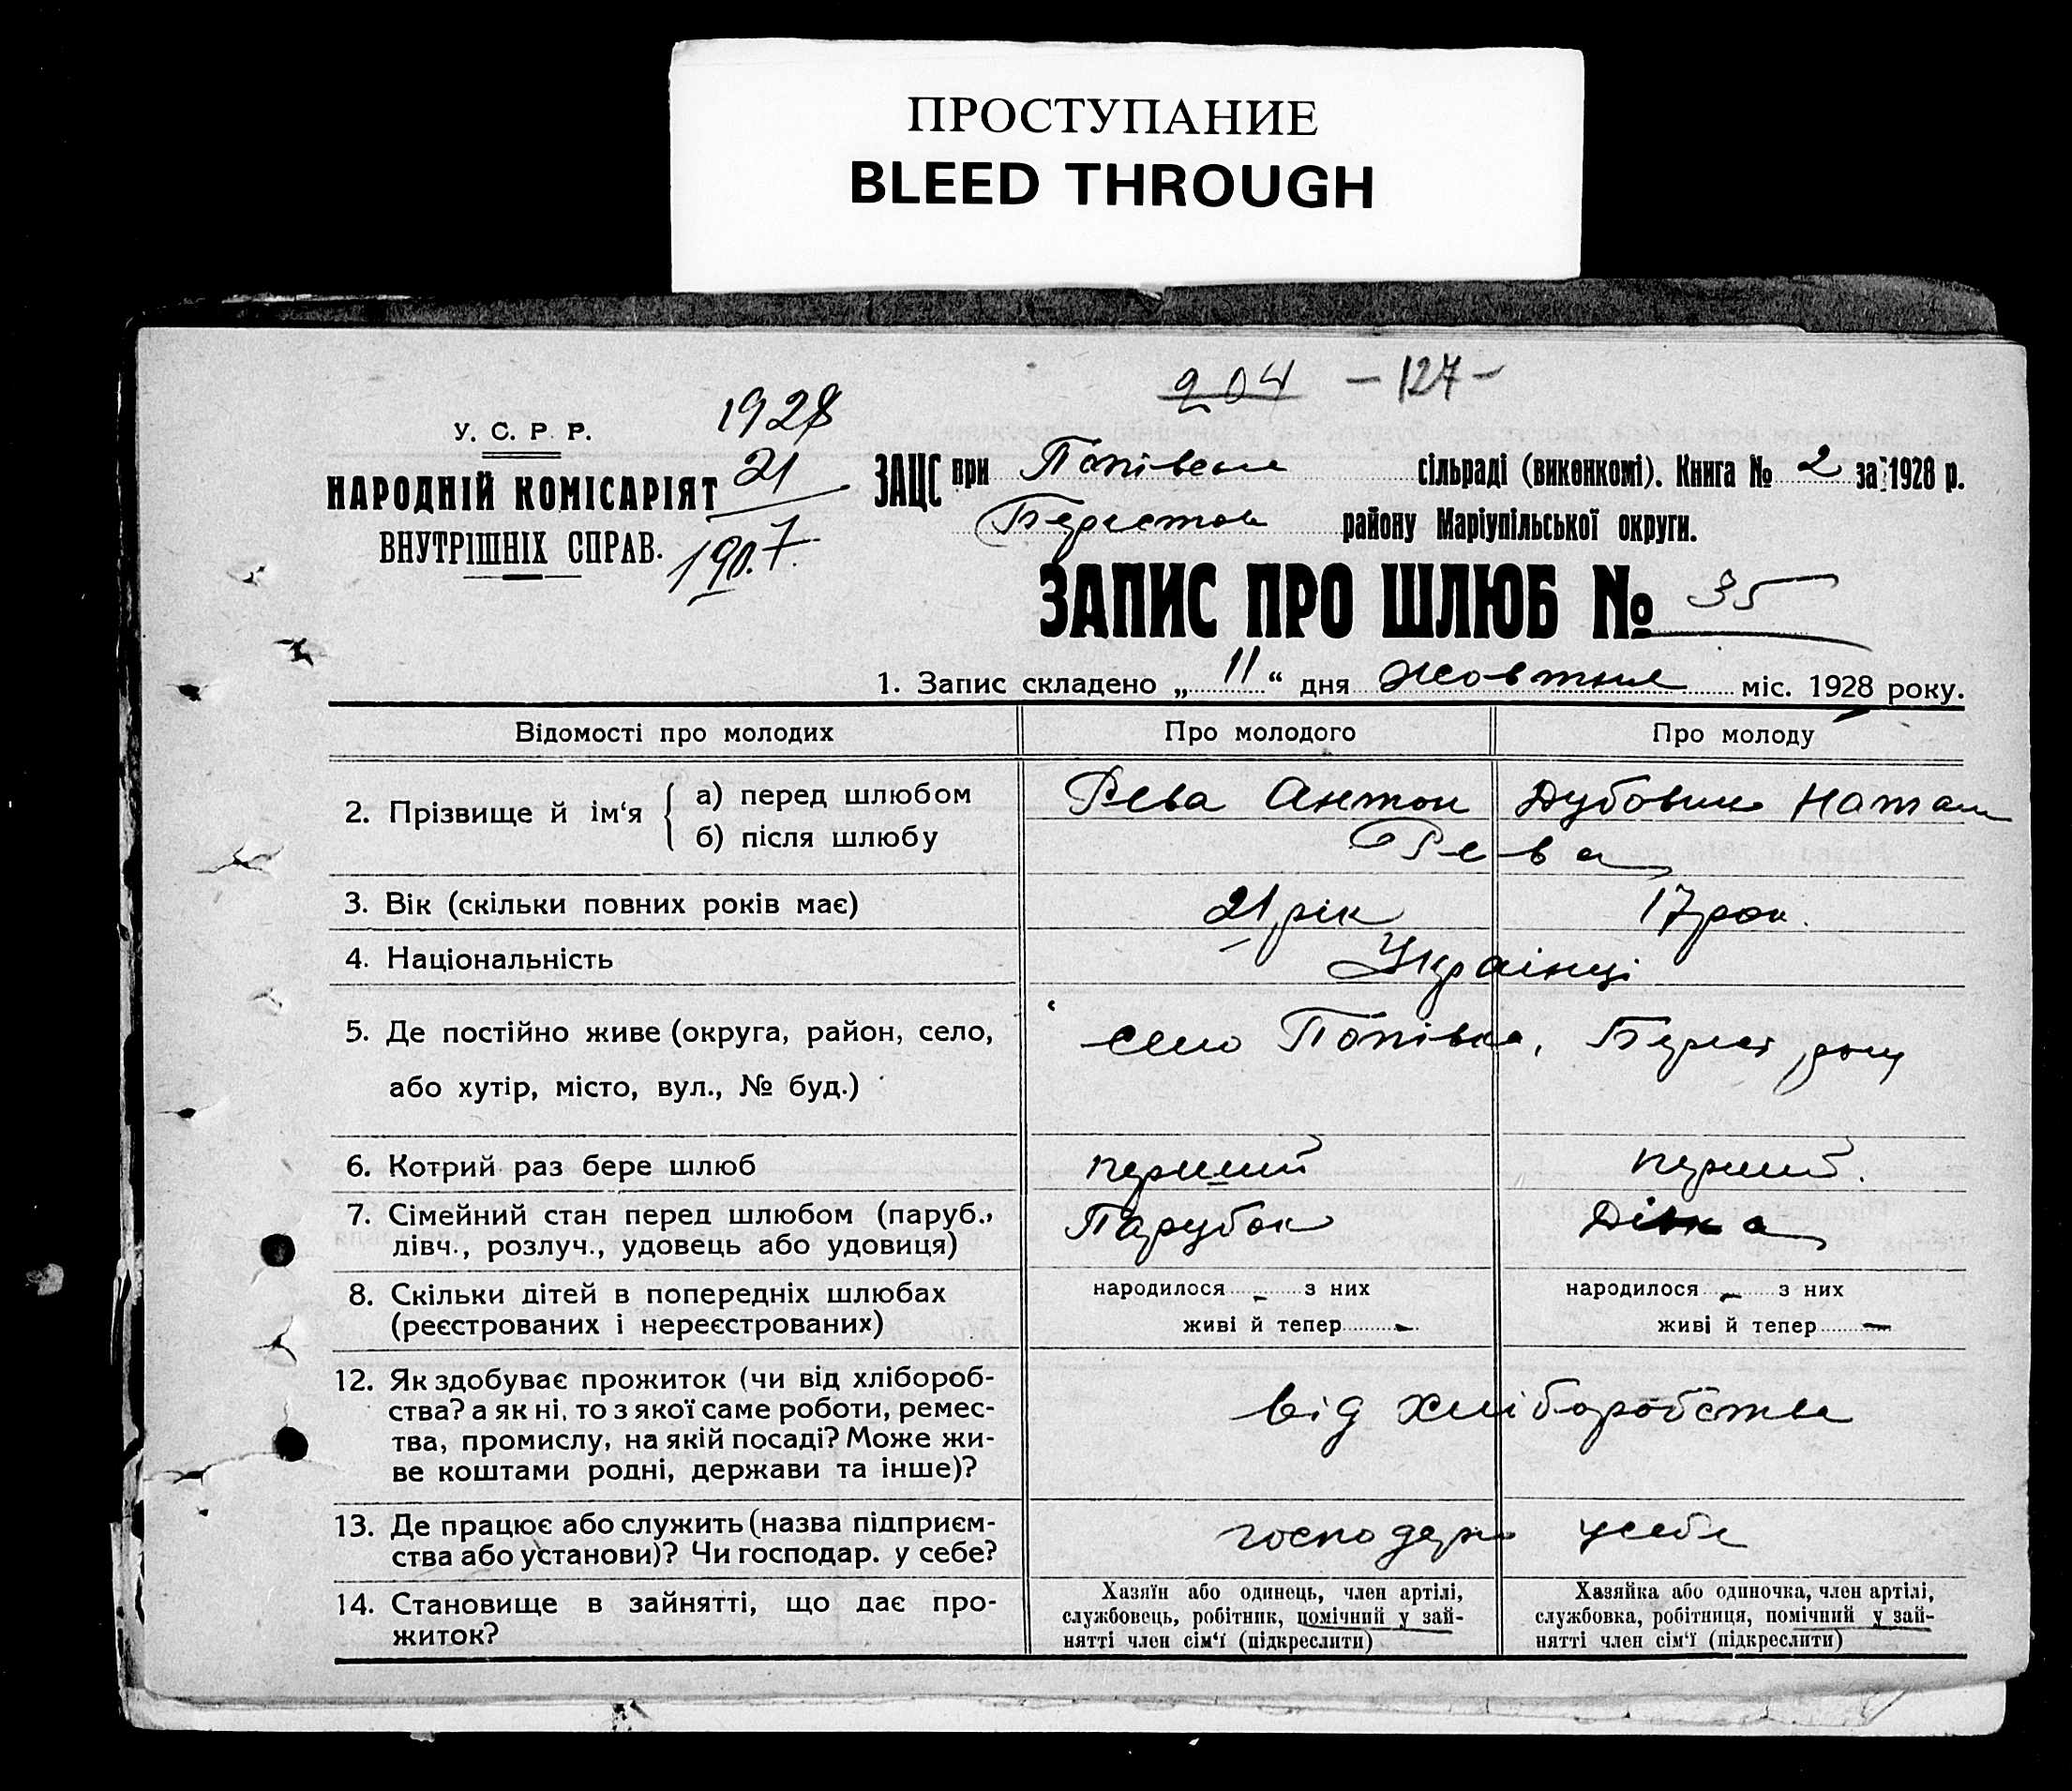 ПРОСТУПАНИЕ
BLEED THROUGH
204 — 127 —
У. С. Р. Р.
НАРОДНІЙ КОМІСАРІЯТ
ВНУТРІШНІХ СПРАВ.
1928
21
1907.
ЗАЦС при Попівській сільраді (виконкомі). Книга № 2 за 1928 р.
Берестов району Маріупільської округи.
ЗАПИС ПРО ШЛЮБ № 35
1. Запис складено „ 11 “ дня Жовтня міс. 1928 року.
Відомості про молодих Про молодого Про молоду
2. Прізвище й ім‘я { а) перед шлюбом Рева Антон Дубовик Натал
б) після шлюбу Рева
3. Вік (скільки повних років має) 21 рік 17 рок.
4. Національність Українці
5. Де постійно живе (округа, район, село, село Попівка, Берест району
або хутір, місто, вул., № буд.)
6. Котрий раз бере шлюб перший перший.
7. Сімейний стан перед шлюбом (паруб., Парубок Дівка
дівч., розлуч., удовець або удовиця)
8. Скільки дітей в попередніх шлюбах народилося – з них народилося – з них
(реєстрованих і нереєстрованих) живі й тепер – живі й тепер –
12. Як здобуває прожиток (чи від хлібороб-
ства? а як ні, то з якої саме роботи, ремес- від хліборобства
тва, промислу, на якій посаді? Може жи-
ве коштами родні, держави та інше)?
13. Де працює або служить (назва підприєм- господар усебе
ства або установи)? Чи господар. у себе?
14. Становище в зайнятті, що дає про- Хазяїн або одинець, член артілі, Хазяйка або одиночка, член артілі,
житок? службовець, робітник, помічний у зай- службовка, робітниця, помічний у зай-
нятті член сім‘ї (підкреслити) нятті член сім‘ї (підкреслити)